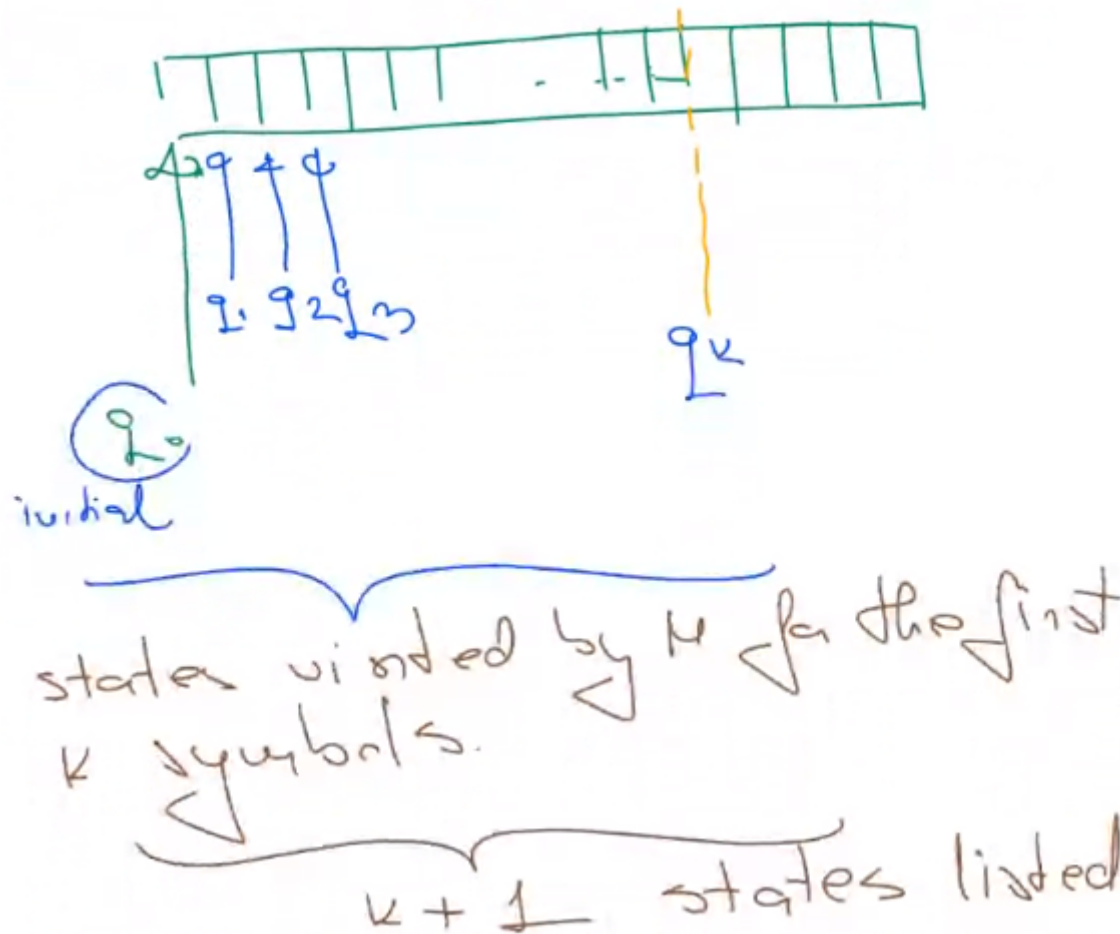 q1 q2 q3
qk
q0
initial
states visited by M for the first
k symbols.
k + 1 states listed